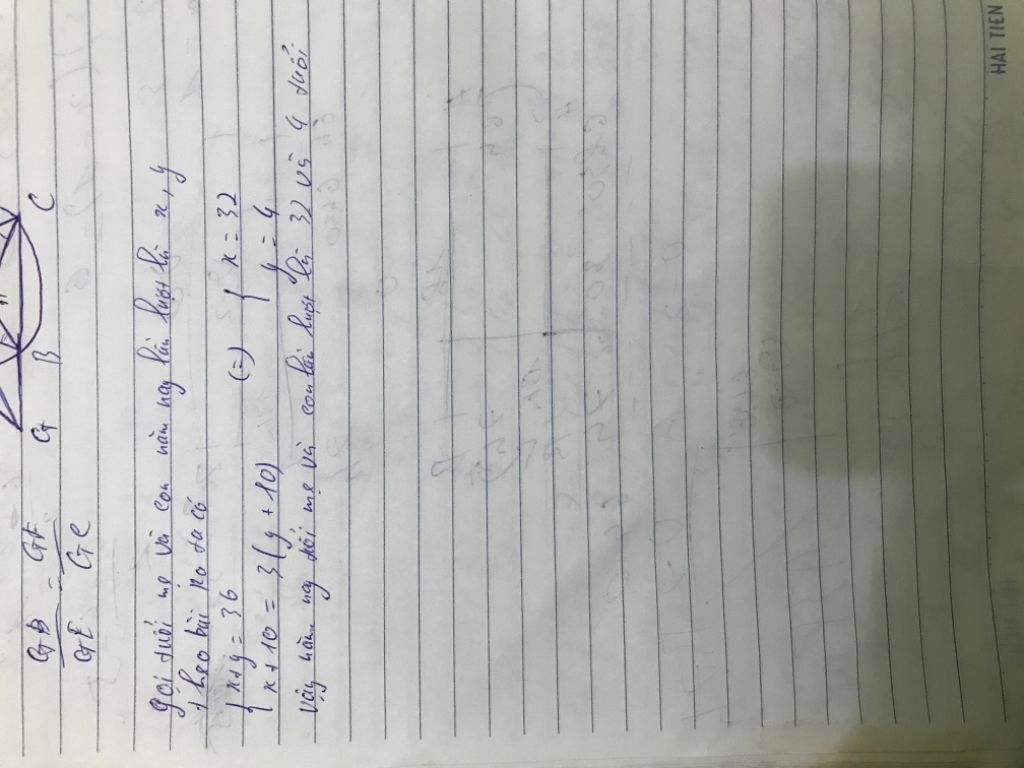 GB/GE = GF/GC
G B C
gọi tuổi mẹ và con năm nay lần lượt là x, y
theo bài ra ta có
{ x + y = 36
{ x + 10 = 3(y + 10) (=) { x = 32
{ y = 4
Vậy năm nay tuổi mẹ và con lần lượt là 32 và 4 tuổi.
HẢI TIẾN